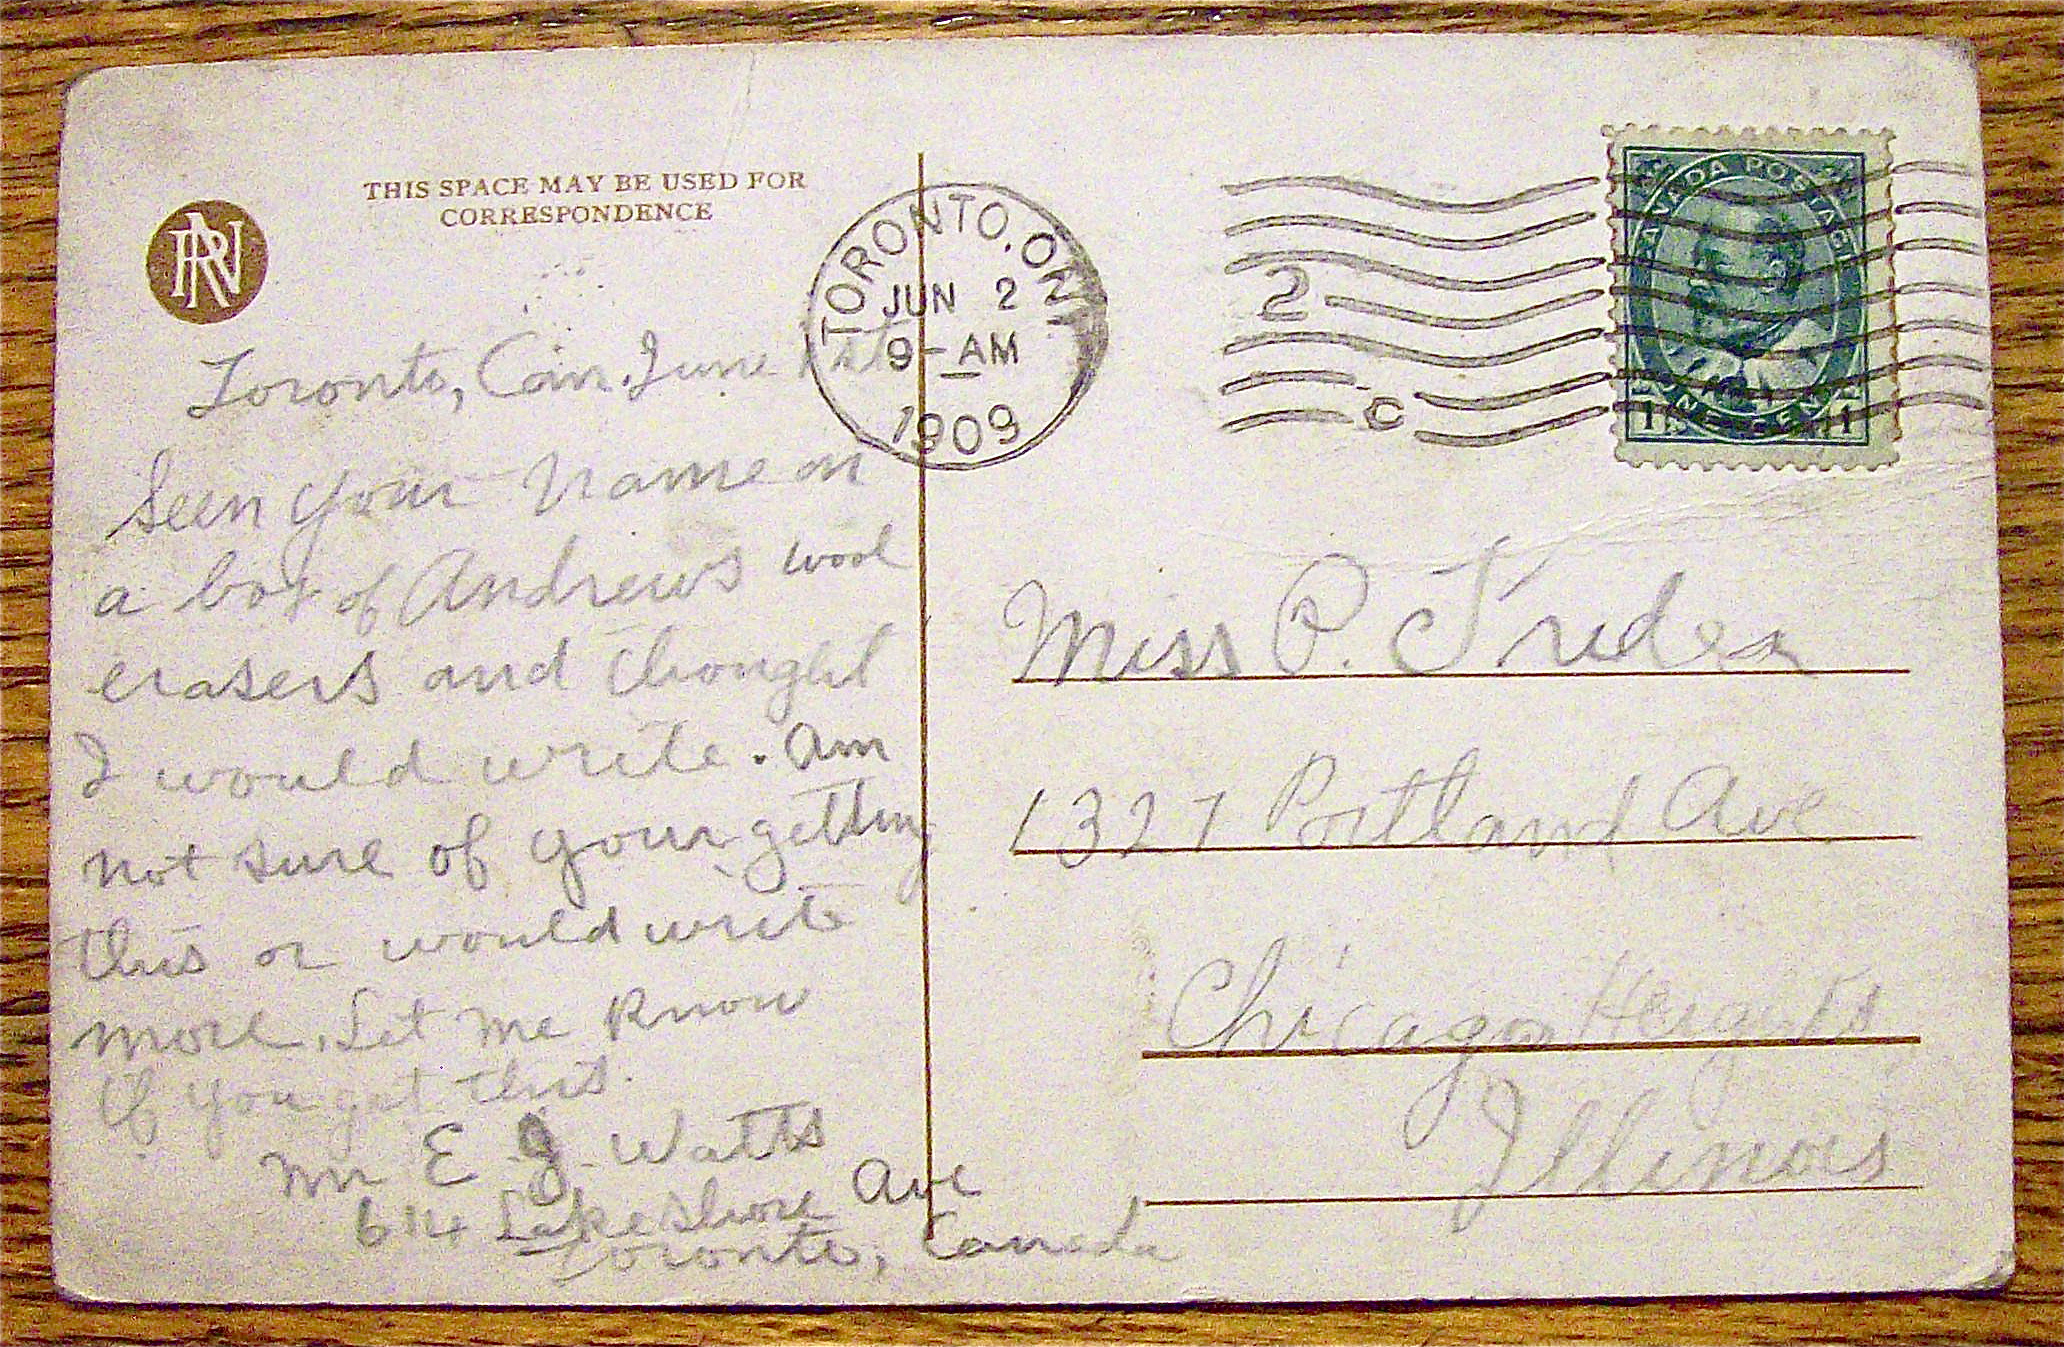 THIS SPACE MAY BE USED FOR
CORRESPONDENCE
Toronto, Can. June 1st
Seen your name on
a box of Andrews wool
erasers and thought
I would write. Am
not sure of your getting
this or would write
more. Let me know
if you get this.
Mr E J. Watts
614 Lakeshore Ave
Toronto, Canada
TORONTO, ONT
JUN 2
9-AM
1909
2
C
CANADA POSTAGE
1 ONE CENT 1
Miss P.
1327 Portland Ave
Chicago Heights
Illinois